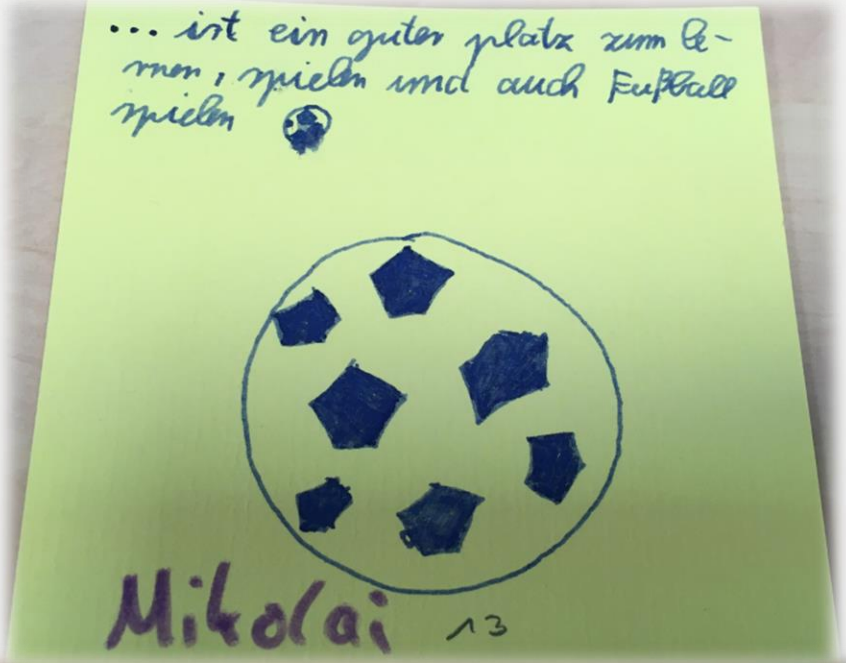 ... ist ein guter platz zum le-
rnen, spielen und auch Fußball
spielen
Mikolai 13